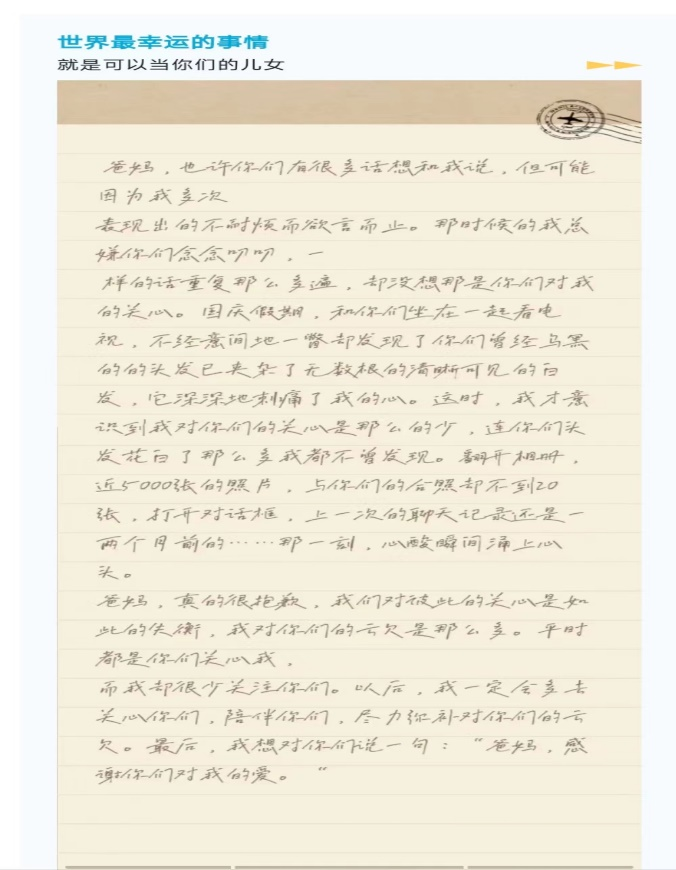 世界最幸运的事情
就是可以当你们的儿女
爸妈，也许你们有很多话想和我说，但可能
因为我多次
表现出的不耐烦而欲言而止。那时候的我总
嫌你们念念叨叨，一
样的话重复那么多遍，却没想那是你们对我
的关心。国庆假期，和你们坐在一起看电
视，不经意间地一瞥却发现了你们曾经乌黑
的的头发已夹杂了无数根的清晰可见的白
发，它深深地刺痛了我的心。这时，我才意
识到我对你们的关心是那么的少，连你们头
发花白了那么多我都不曾发现。翻开相册，
近5000张的照片，与你们的合照却不到20
张，打开对话框，上一次的聊天记录还是一
两个月前的……那一刻，心酸瞬间涌上心
头。
爸妈，真的很抱歉，我们对彼此的关心是如
此的失衡，我对你们的亏欠是那么多。平时
都是你们关心我，
而我却很少关注你们。以后，我一定会多去
关心你们，陪伴你们，尽力弥补对你们的亏
欠。最后，我想对你们说一句：“爸妈，感
谢你们对我的爱。“